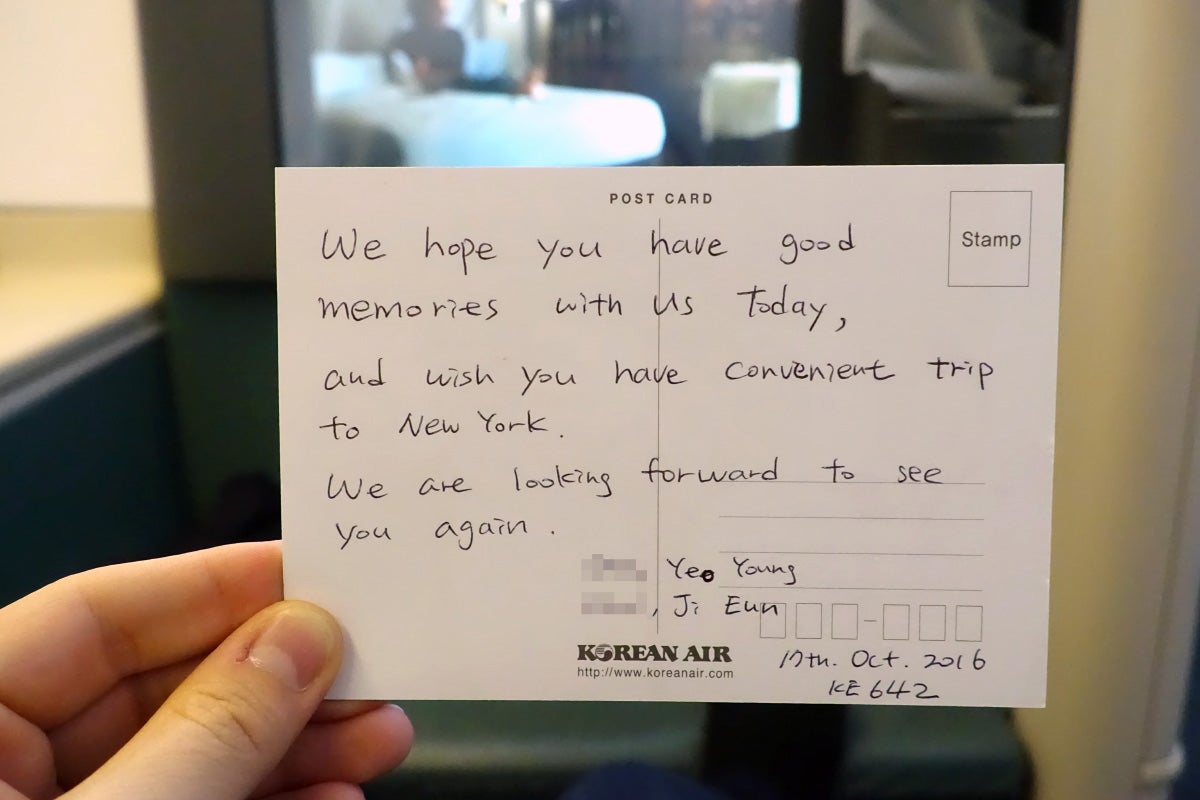 POST CARD
Stamp
We hope you have good
memories with us today,
and wish you have convenient trip
to New York.
We are looking forward to see
you again.
Yeo Young
, Ji Eun
KOREAN AIR
http://www.koreanair.com
17th. Oct. 2016
KE 642